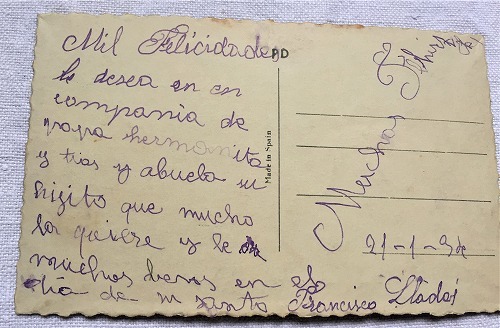 Mil Felicidades
le desea en en
compania de
papa hermanita
y tias y abuela su
hijito que mucho
la quiere y le da
muchos besos en el
dia de su santo Francisco Lladós
PD
Made in Spain
Muchas Felicidades
21-1-